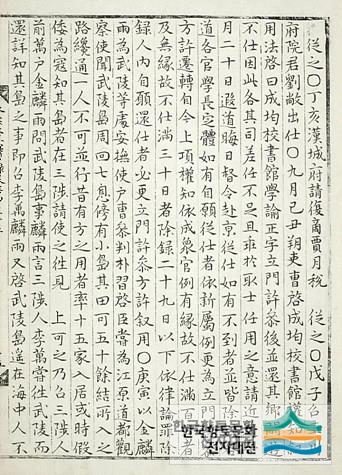 從之○丁亥漢城府請復商賈月稅　從之○戊子召
府院君劉敞出仕○九月己丑朔吏曹啓成均校書館
用法啓曰成均校書館學諭正字立門許參後並還其鄕
不仕因此各其司差任不足且非於取士任用之意請近
月二十日遐道晦日督令赴京從仕如有不到者並皆除
道各官學長定體如有自願從仕者依新屬例更爲立門
方許遷轉自今上項權知依成衆官例有緣故不仕滿百
及無緣故不仕滿三十日者除錄二十九日以下依律論罪除
錄人內自願還仕者必更立門許參方許叙用○庚寅以金麟
雨爲武陵等處安撫使戶曹參判朴習啓臣嘗爲江原道都觀
察使聞武陵島周回七息傍有小島其田可五十餘結所入之
路纔通一人不可並行昔有方之用者率十五家入居或時假
倭爲寇知其島者在三陟請使之往見　上可之乃召三陟人
前萬戶金麟雨問武陵島事麟雨言三陟人李萬嘗往武陵而
還詳知其島之事卽召李萬麟雨又啓武陵島遙在海中人不
한국향토문화
전자대전